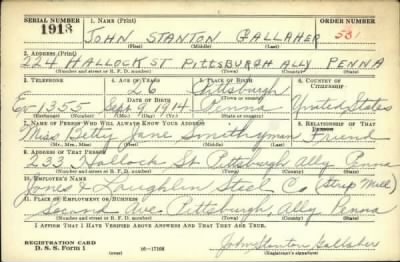 SERIAL NUMBER 1. NAME (Print) ORDER NUMBER
1913 JOHN STANTON GALLAHER 581
(First) (Middle) (Last)
2. ADDRESS (Print)
224 HALLOCK ST PITTSBURGH ALLY PENNA
(Number and street or R. F. D. number) (Town) (County) (State)
3. TELEPHONE 4. AGE IN YEARS 5. PLACE OF BIRTH 6. COUNTRY OF CITIZENSHIP
26 Pittsburgh
DATE OF BIRTH
Ev 1355 Sept 9 1914 Penna United States
(Exchange) (Number) (Mo.) (Day) (Yr.) (State or country)
7. NAME OF PERSON WHO WILL ALWAYS KNOW YOUR ADDRESS 8. RELATIONSHIP OF THAT PERSON
Miss Betty Jane Smithyman Friend
(Mr., Mrs., Miss) (First) (Middle) (Last)
9. ADDRESS OF THAT PERSON
233 Hallock St Pittsburgh, Ally Penna
(Number and street or R. F. D. number) (Town) (County) (State)
10. EMPLOYER'S NAME
Jones & Laughlin Steel Co (Strip Mill)
11. PLACE OF EMPLOYMENT OR BUSINESS
Second Ave Pittsburgh, Ally Penna
(Number and street or R. F. D. number) (Town) (County) (State)
I AFFIRM THAT I HAVE VERIFIED ABOVE ANSWERS AND THAT THEY ARE TRUE.
REGISTRATION CARD
D. S. S. Form 1 16—17105 John Stanton Gallaher
(Registrant's signature)